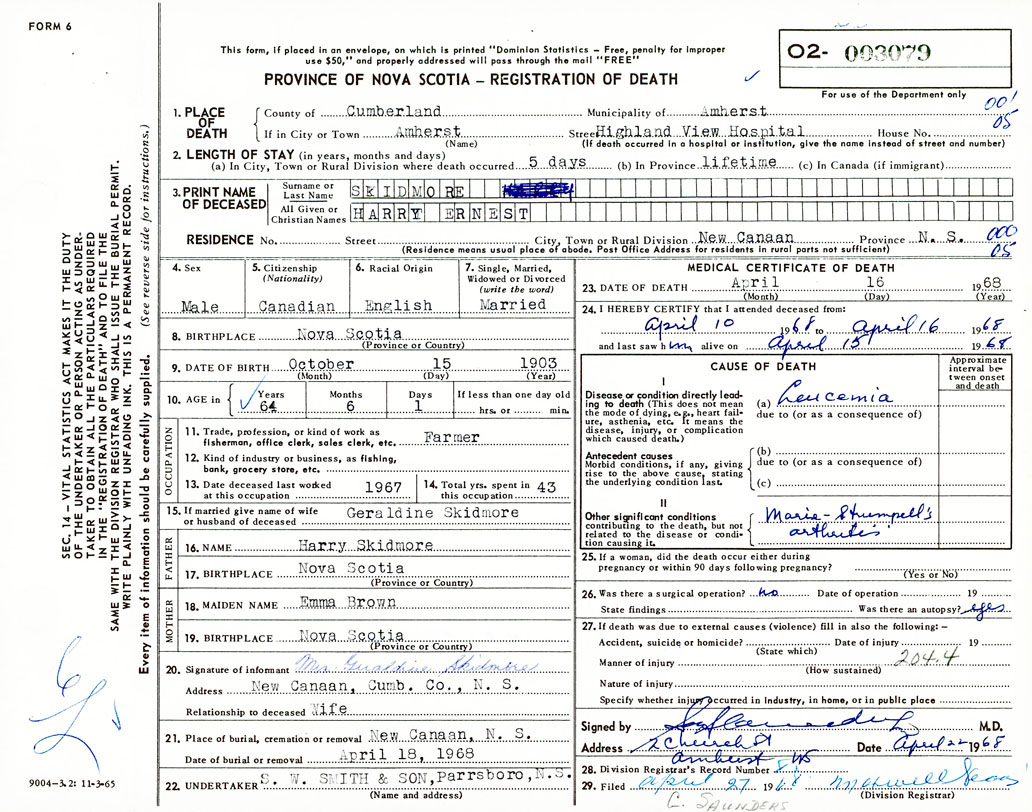 FORM 6
This form, if placed in an envelope, on which is printed "Dominion Statistics – Free, penalty for improper
use $50," and properly addressed will pass through the mail "FREE"
PROVINCE OF NOVA SCOTIA – REGISTRATION OF DEATH
02- 003079
For use of the Department only
001
05
1. PLACE OF DEATH
County of Cumberland Municipality of Amherst
If in City or Town Amherst Street Highland View Hospital House No.
(Name) (If death occurred in a hospital or institution, give the name instead of street and number)
2. LENGTH OF STAY (in years, months and days)
(a) In City, Town or Rural Division where death occurred 5 days (b) In Province lifetime (c) In Canada (if immigrant)
3. PRINT NAME OF DECEASED
Surname or Last Name SKIDMORE
All Given or Christian Names HARRY ERNEST
RESIDENCE No. Street City, Town or Rural Division New Canaan Province N. S.
(Residence means usual place of abode. Post Office Address for residents in rural parts not sufficient)
000
05
4. Sex
Male
5. Citizenship (Nationality)
Canadian
6. Racial Origin
English
7. Single, Married, Widowed or Divorced (write the word)
Married
8. BIRTHPLACE Nova Scotia
(Province or Country)
9. DATE OF BIRTH October 15 1903
(Month) (Day) (Year)
10. AGE in Years Months Days If less than one day old
64 6 1 hrs. or min.
OCCUPATION
11. Trade, profession, or kind of work as fisherman, office clerk, sales clerk, etc. Farmer
12. Kind of industry or business, as fishing, bank, grocery store, etc.
13. Date deceased last worked at this occupation 1967
14. Total yrs. spent in this occupation 43
15. If married give name of wife or husband of deceased Geraldine Skidmore
FATHER
16. NAME Harry Skidmore
17. BIRTHPLACE Nova Scotia
(Province or Country)
MOTHER
18. MAIDEN NAME Emma Brown
19. BIRTHPLACE Nova Scotia
(Province or Country)
20. Signature of informant Mrs Geraldine Skidmore
Address New Canaan, Cumb. Co., N. S.
Relationship to deceased Wife
21. Place of burial, cremation or removal New Canaan, N. S.
Date of burial or removal April 18, 1968
22. UNDERTAKER S. W. SMITH & SON, Parrsboro, N.S.
(Name and address)
MEDICAL CERTIFICATE OF DEATH
23. DATE OF DEATH April 16 1968
(Month) (Day) (Year)
24. I HEREBY CERTIFY that I attended deceased from:
April 10 1968 to April 16 1968
and last saw him alive on April 15 1968
CAUSE OF DEATH
Approximate interval between onset and death
I
Disease or condition directly leading to death (This does not mean the mode of dying, e.g., heart failure, asthenia, etc. It means the disease, injury, or complication which caused death.)
(a) Leucemia
due to (or as a consequence of)
Antecedent causes
Morbid conditions, if any, giving rise to the above cause, stating the underlying condition last.
(b)
due to (or as a consequence of)
(c)
II
Other significant conditions contributing to the death, but not related to the disease or condition causing it.
Marie-Strumpell's
arthritis
25. If a woman, did the death occur either during
pregnancy or within 90 days following pregnancy?
(Yes or No)
26. Was there a surgical operation? no Date of operation 19
State findings Was there an autopsy? yes
27. If death was due to external causes (violence) fill in also the following: –
Accident, suicide or homicide? Date of injury 19
(State which)
204.4
Manner of injury
(How sustained)
Nature of injury
Specify whether injury occurred in Industry, in home, or in public place
Signed by M.D.
Address 2 Church St Date April 22 1968
Amherst NS
28. Division Registrar's Record Number
29. Filed April 27 1968 Maxwell
(Division Registrar)
C. SAUNDERS
SEC. 14 – VITAL STATISTICS ACT MAKES IT THE DUTY
OF THE UNDERTAKER OR PERSON ACTING AS UNDER-
TAKER TO OBTAIN ALL THE PARTICULARS REQUIRED
IN THE "REGISTRATION OF DEATH" AND TO FILE THE
SAME WITH THE DIVISION REGISTRAR WHO SHALL ISSUE THE BURIAL PERMIT.
WRITE PLAINLY WITH UNFADING INK. THIS IS A PERMANENT RECORD.
Every item of information should be carefully supplied. (See reverse side for instructions.)
9004-3.2: 11-3-65